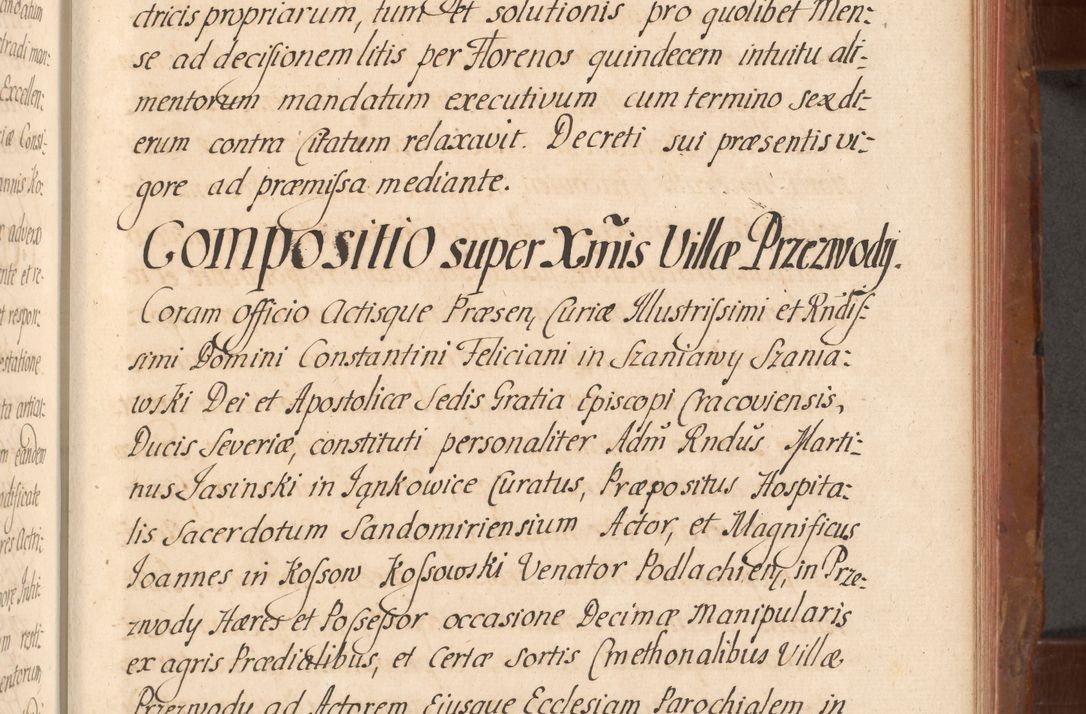 ctricis propriarum, tum et solutionis pro quolibet Men:
se ad decisionem litis per Florenos quindecem intuitu ali-
mentorum mandatum executivum cum termino sex di-
erum contra Citatum relaxavit. Decreti sui præsentis vi-
gore ad præmissa mediante.
Compositio super Xmis Villæ Przezwody.
Coram Officio Actisque Præsen, Curiæ Illustrissimi et Rndis-
simi Domini Constantini Feliciani in Szaniawy Szania:
wski Dei et Apostolicæ Sedis Gratia Episcopi Cracoviensis,
Ducis Severiæ, constituti personaliter Adm Rndus Marti-
nus Jasinski in Jąnkowice Curatus, Præpositus Hospita:
lis Sacerdotum Sandomiriensium Actor, et Magnificus
Joannes in Kossow Kossowski Venator Podlachien, in Prze-
zwody Hæres et Possessor occasione Decimæ Manipularis
ex agris Prædialibus, et Certæ Sortis Cmethonalibus Villæ
Przezwody ad Actorem Ejusque Ecclesiam Parochialem in